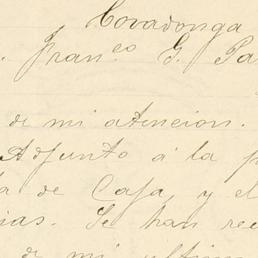 Covadonga
. Franco G. Pa
de mi atencion.
Adjunto á la p
ta de Caja y el
ias. Se han rec
de mi ultim